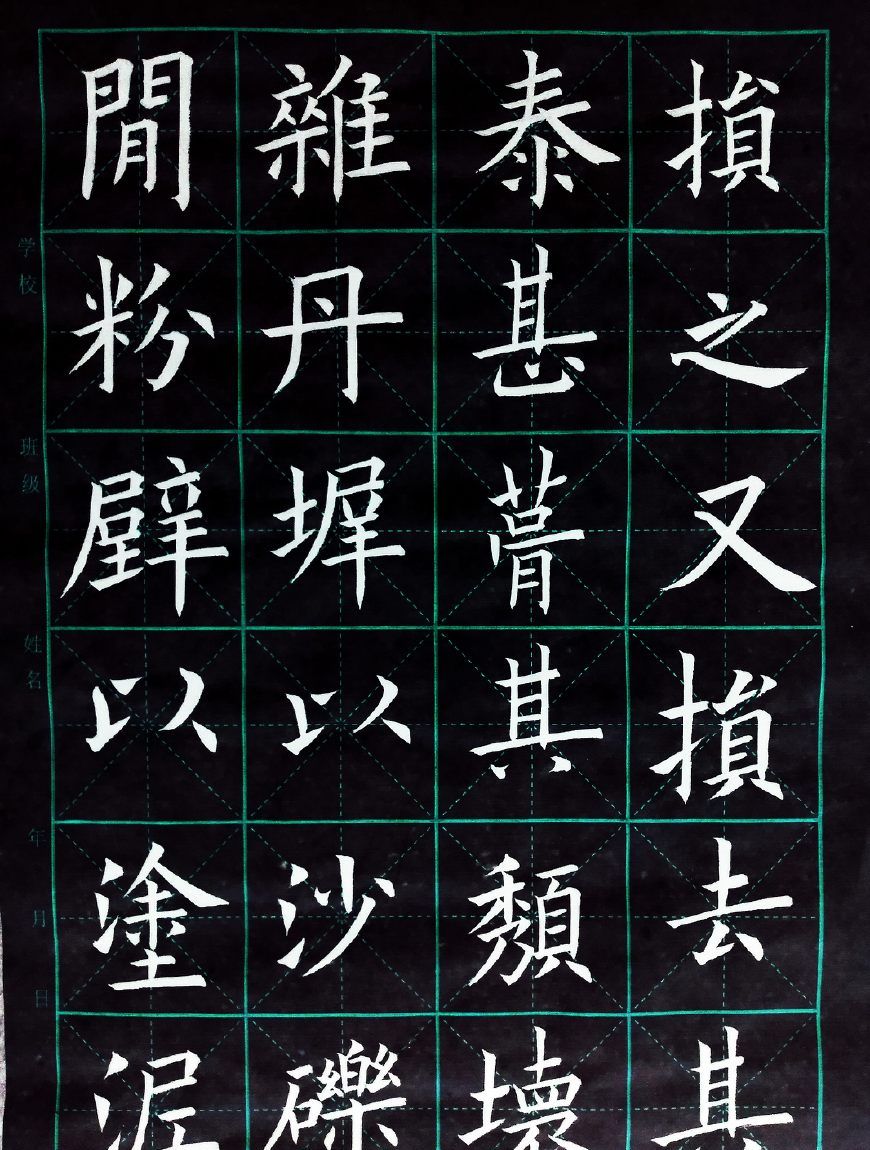 損之又損去其
泰甚葺其頽壞
雜丹墀以沙礫
閒粉壁以塗泥
学校 班级 姓名 年 月 日